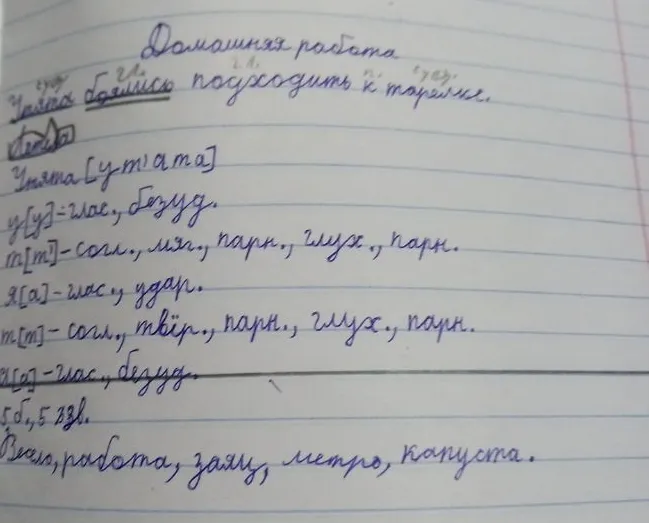 Домашняя работа
сущ. гл. гл. п. сущ.
Утята боялись подходить к тарелке.
Утята [ут'ата]
у[у]-глас., безуд.
т[т']-согл., мяг., парн., глух., парн.
я[а]-глас., удар.
т[т]-согл., твёр., парн., глух., парн.
а[а]-глас., безуд.
5 б., 5 зв.
Весело, работа, заяц, метро, капуста.